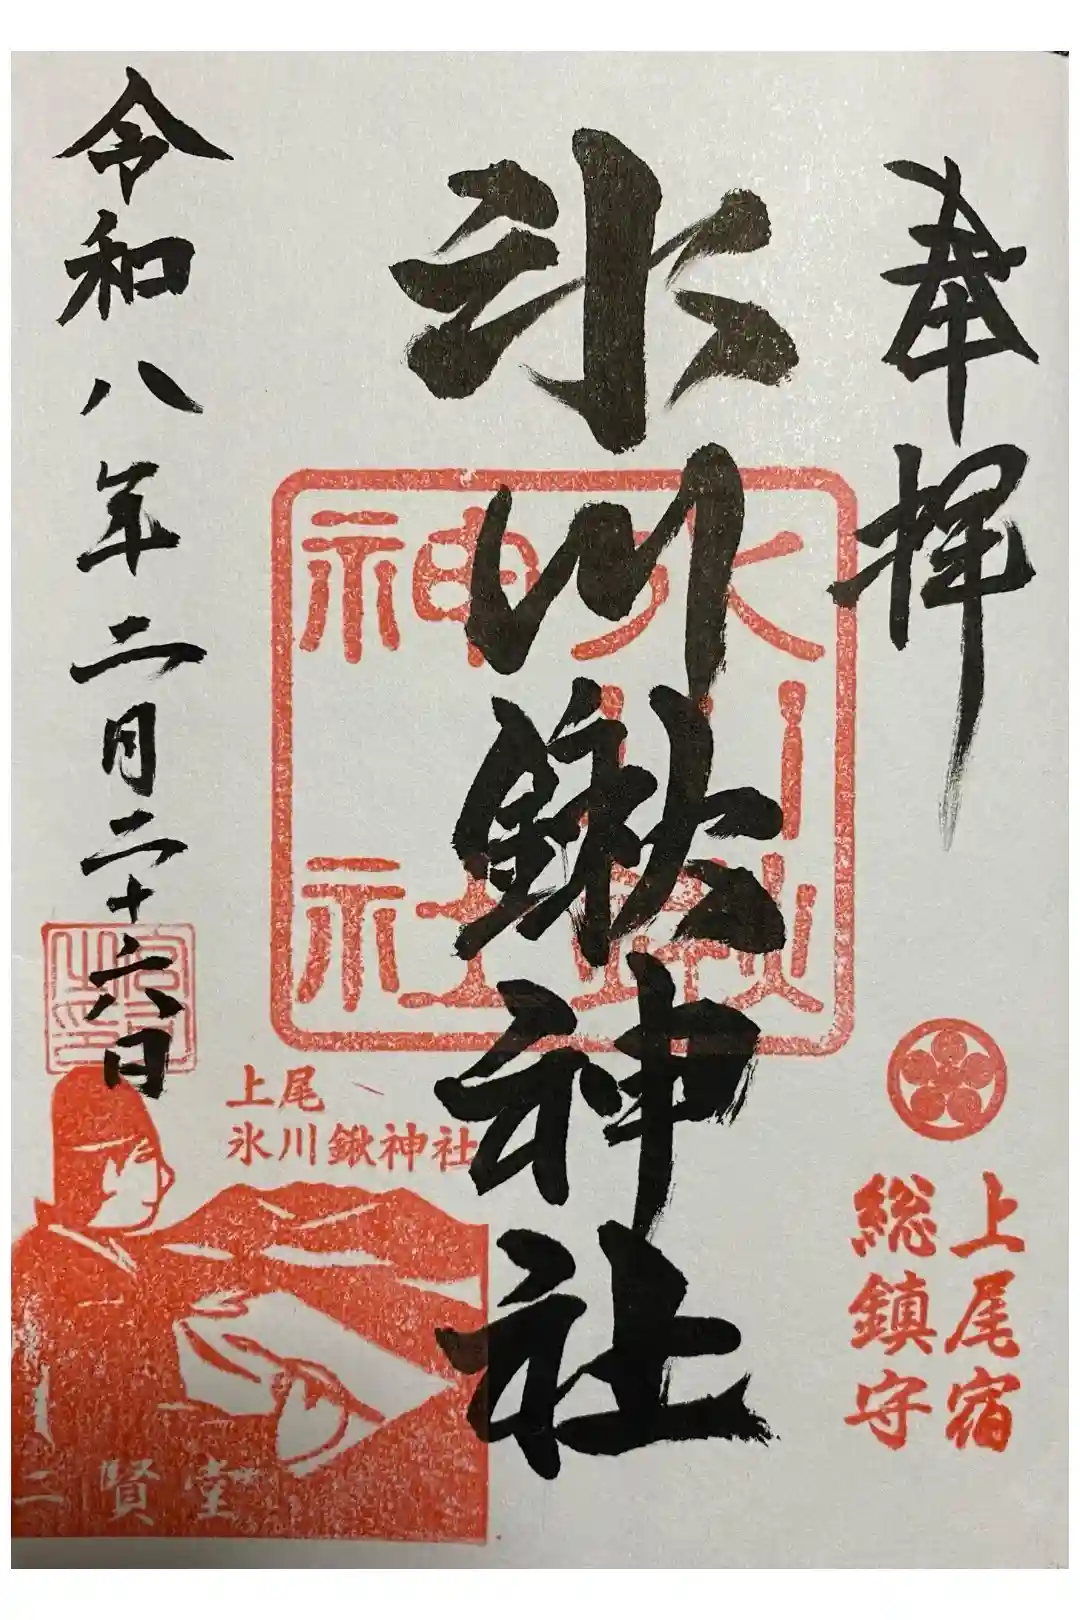 奉拝
上尾宿
総鎮守
氷川鍬神社
氷川
鍬神社
上尾
氷川鍬神社
令和八年二月二十六日
二賢堂